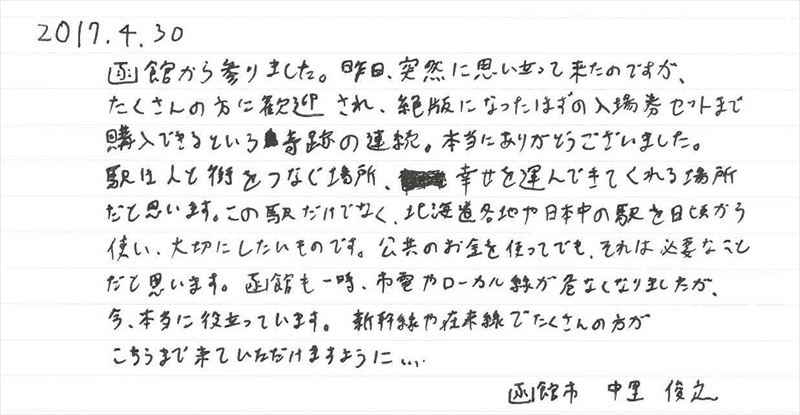 2017.4.30
函館から参りました。昨日、突然に思い立って来たのですが、
たくさんの方に歓迎され、絶版になったはずの入場券セットまで
購入できるという奇跡の連続。本当にありがとうございました。
駅は人と街をつなぐ場所、幸せを運んできてくれる場所
だと思います。この駅だけでなく、北海道各地や日本中の駅を日頃から
使い、大切にしたいものです。公共のお金を使ってでも、それは必要なこと
だと思います。函館も一時、市電やローカル線が危なくなりましたが、
今、本当に役立っています。新幹線や在来線でたくさんの方が
こちらまで来ていただけますように...
函館市 中里 俊之